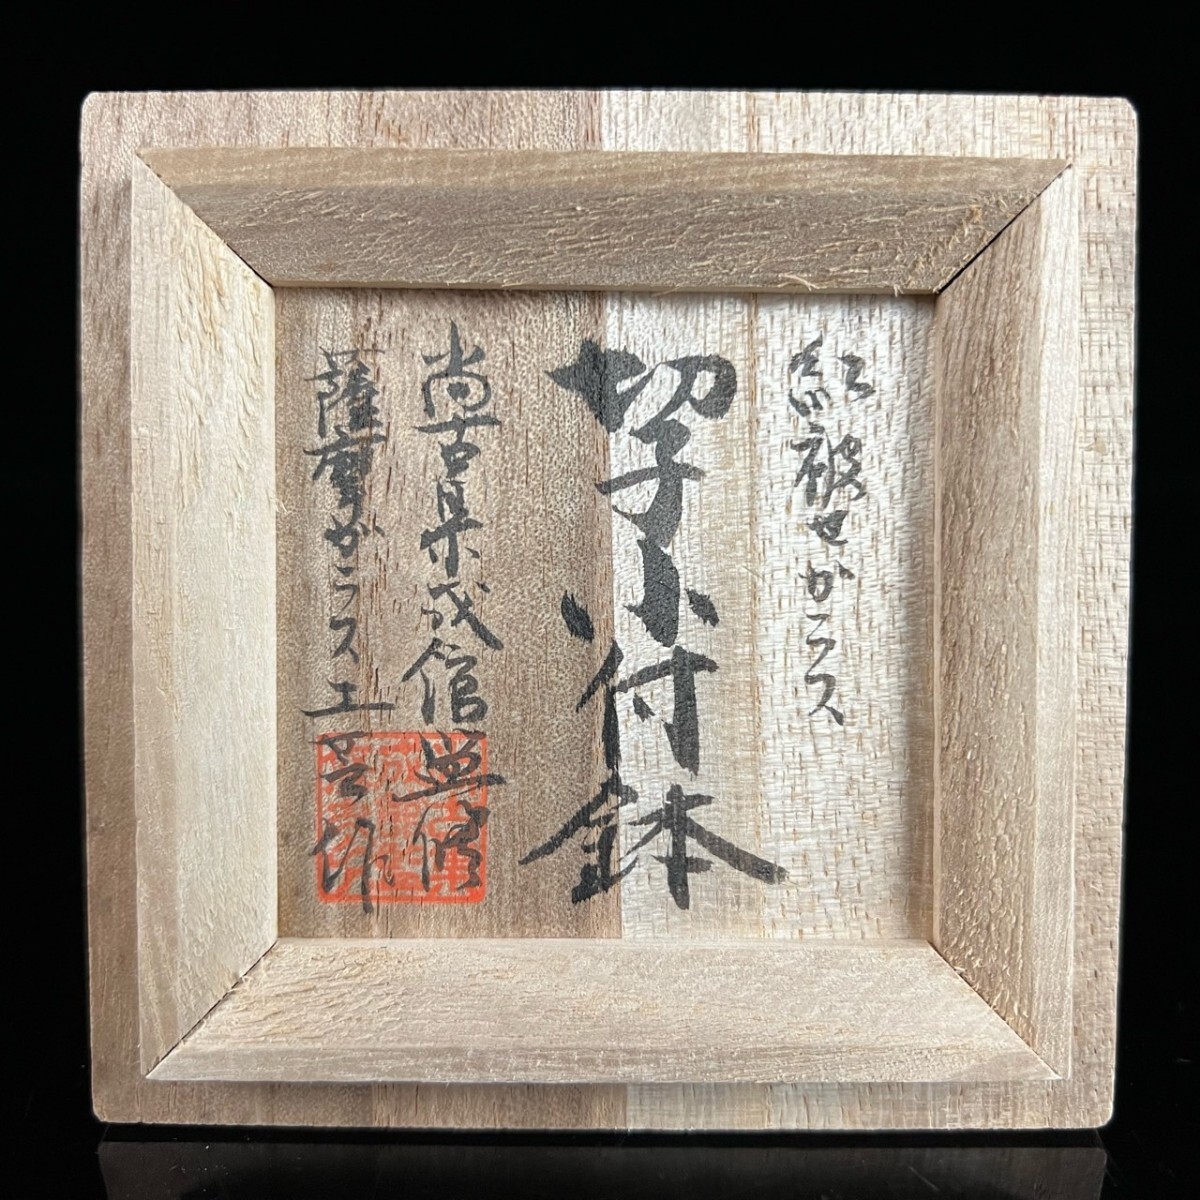 紅被せガラス
切子小付鉢
尚古集成館監修
薩摩ガラス工芸作